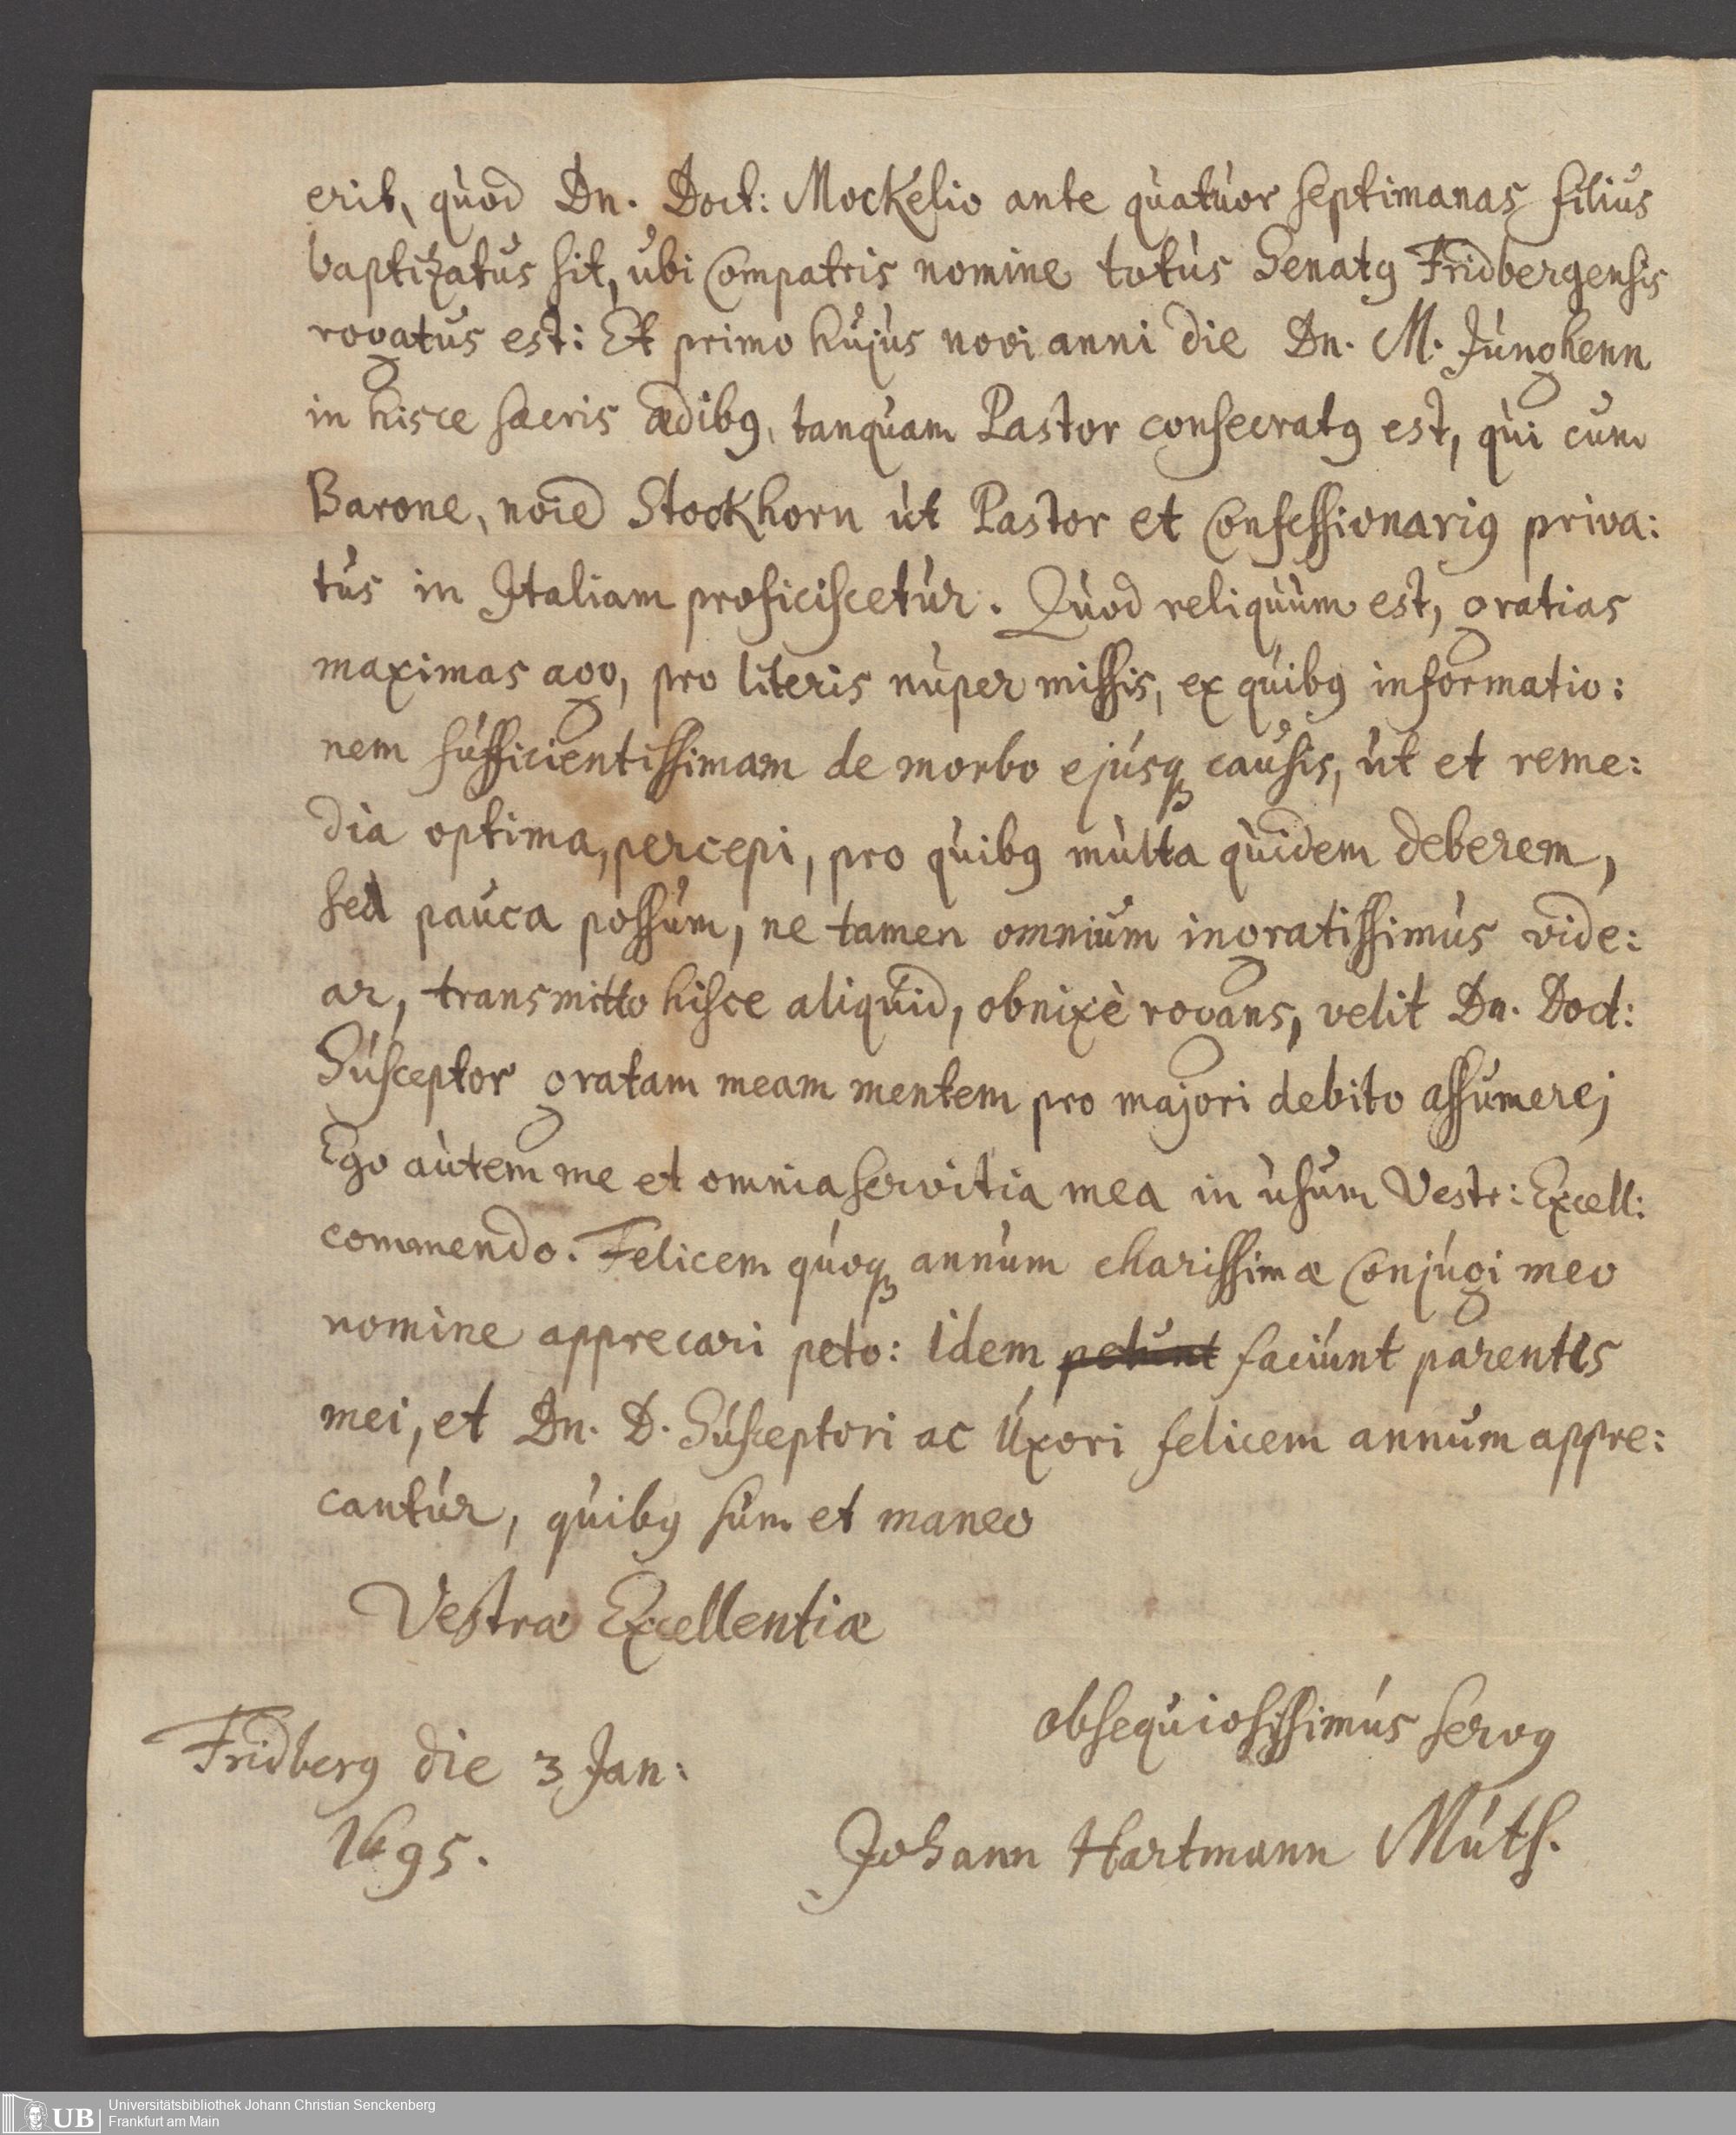 erit, quod Dn. Doct: Mockelio ante quatuor septimanas filius
baptizatus sit, ubi Compatris nomine totus Senatꝰ Fridbergensis
rogatus est: Et primo hujus novi anni die Dn. M. Junghenn
in hisce sacris ædibꝰ, tanquam Pastor consecratꝰ est, qui cum
Barone, noie Stockhorn ut Pastor et Confessionariꝰ priva:
tus in Italiam proficiscetur. Quod reliquum est, gratias
maximas ago, pro literis nuper missis, ex quibꝰ informatio:
nem sufficientissimam de morbo ejusqꝫ causis, ut et reme:
dia optima, percepi, pro quibꝰ multa quidem deberem,
sed pauca possum, ne tamen omnium ingratissimus vide:
ar, transmitto hisce aliquid, obnixè rogans, velit Dn. Doct:
Susceptor gratam meam mentem pro majori debito assumere;
Ego autem me et omnia servitia mea in usum Vestr: Excell:
commendo. Felicem quoqꝫ annum charissimæ Conjugi meo
nomine apprecari peto: idem petunt faciunt parentes
mei, et Dn. D. Susceptori ac Uxori felicem annum appre:
cantur, quibꝰ sum et maneo
Vestræ Excellentiæ
obsequiosissimus servꝰ
Fridberg die 3 Jan:
1695.
Johann Hartmann Muth.
UB
Universitätsbibliothek Johann Christian Senckenberg
Frankfurt am Main